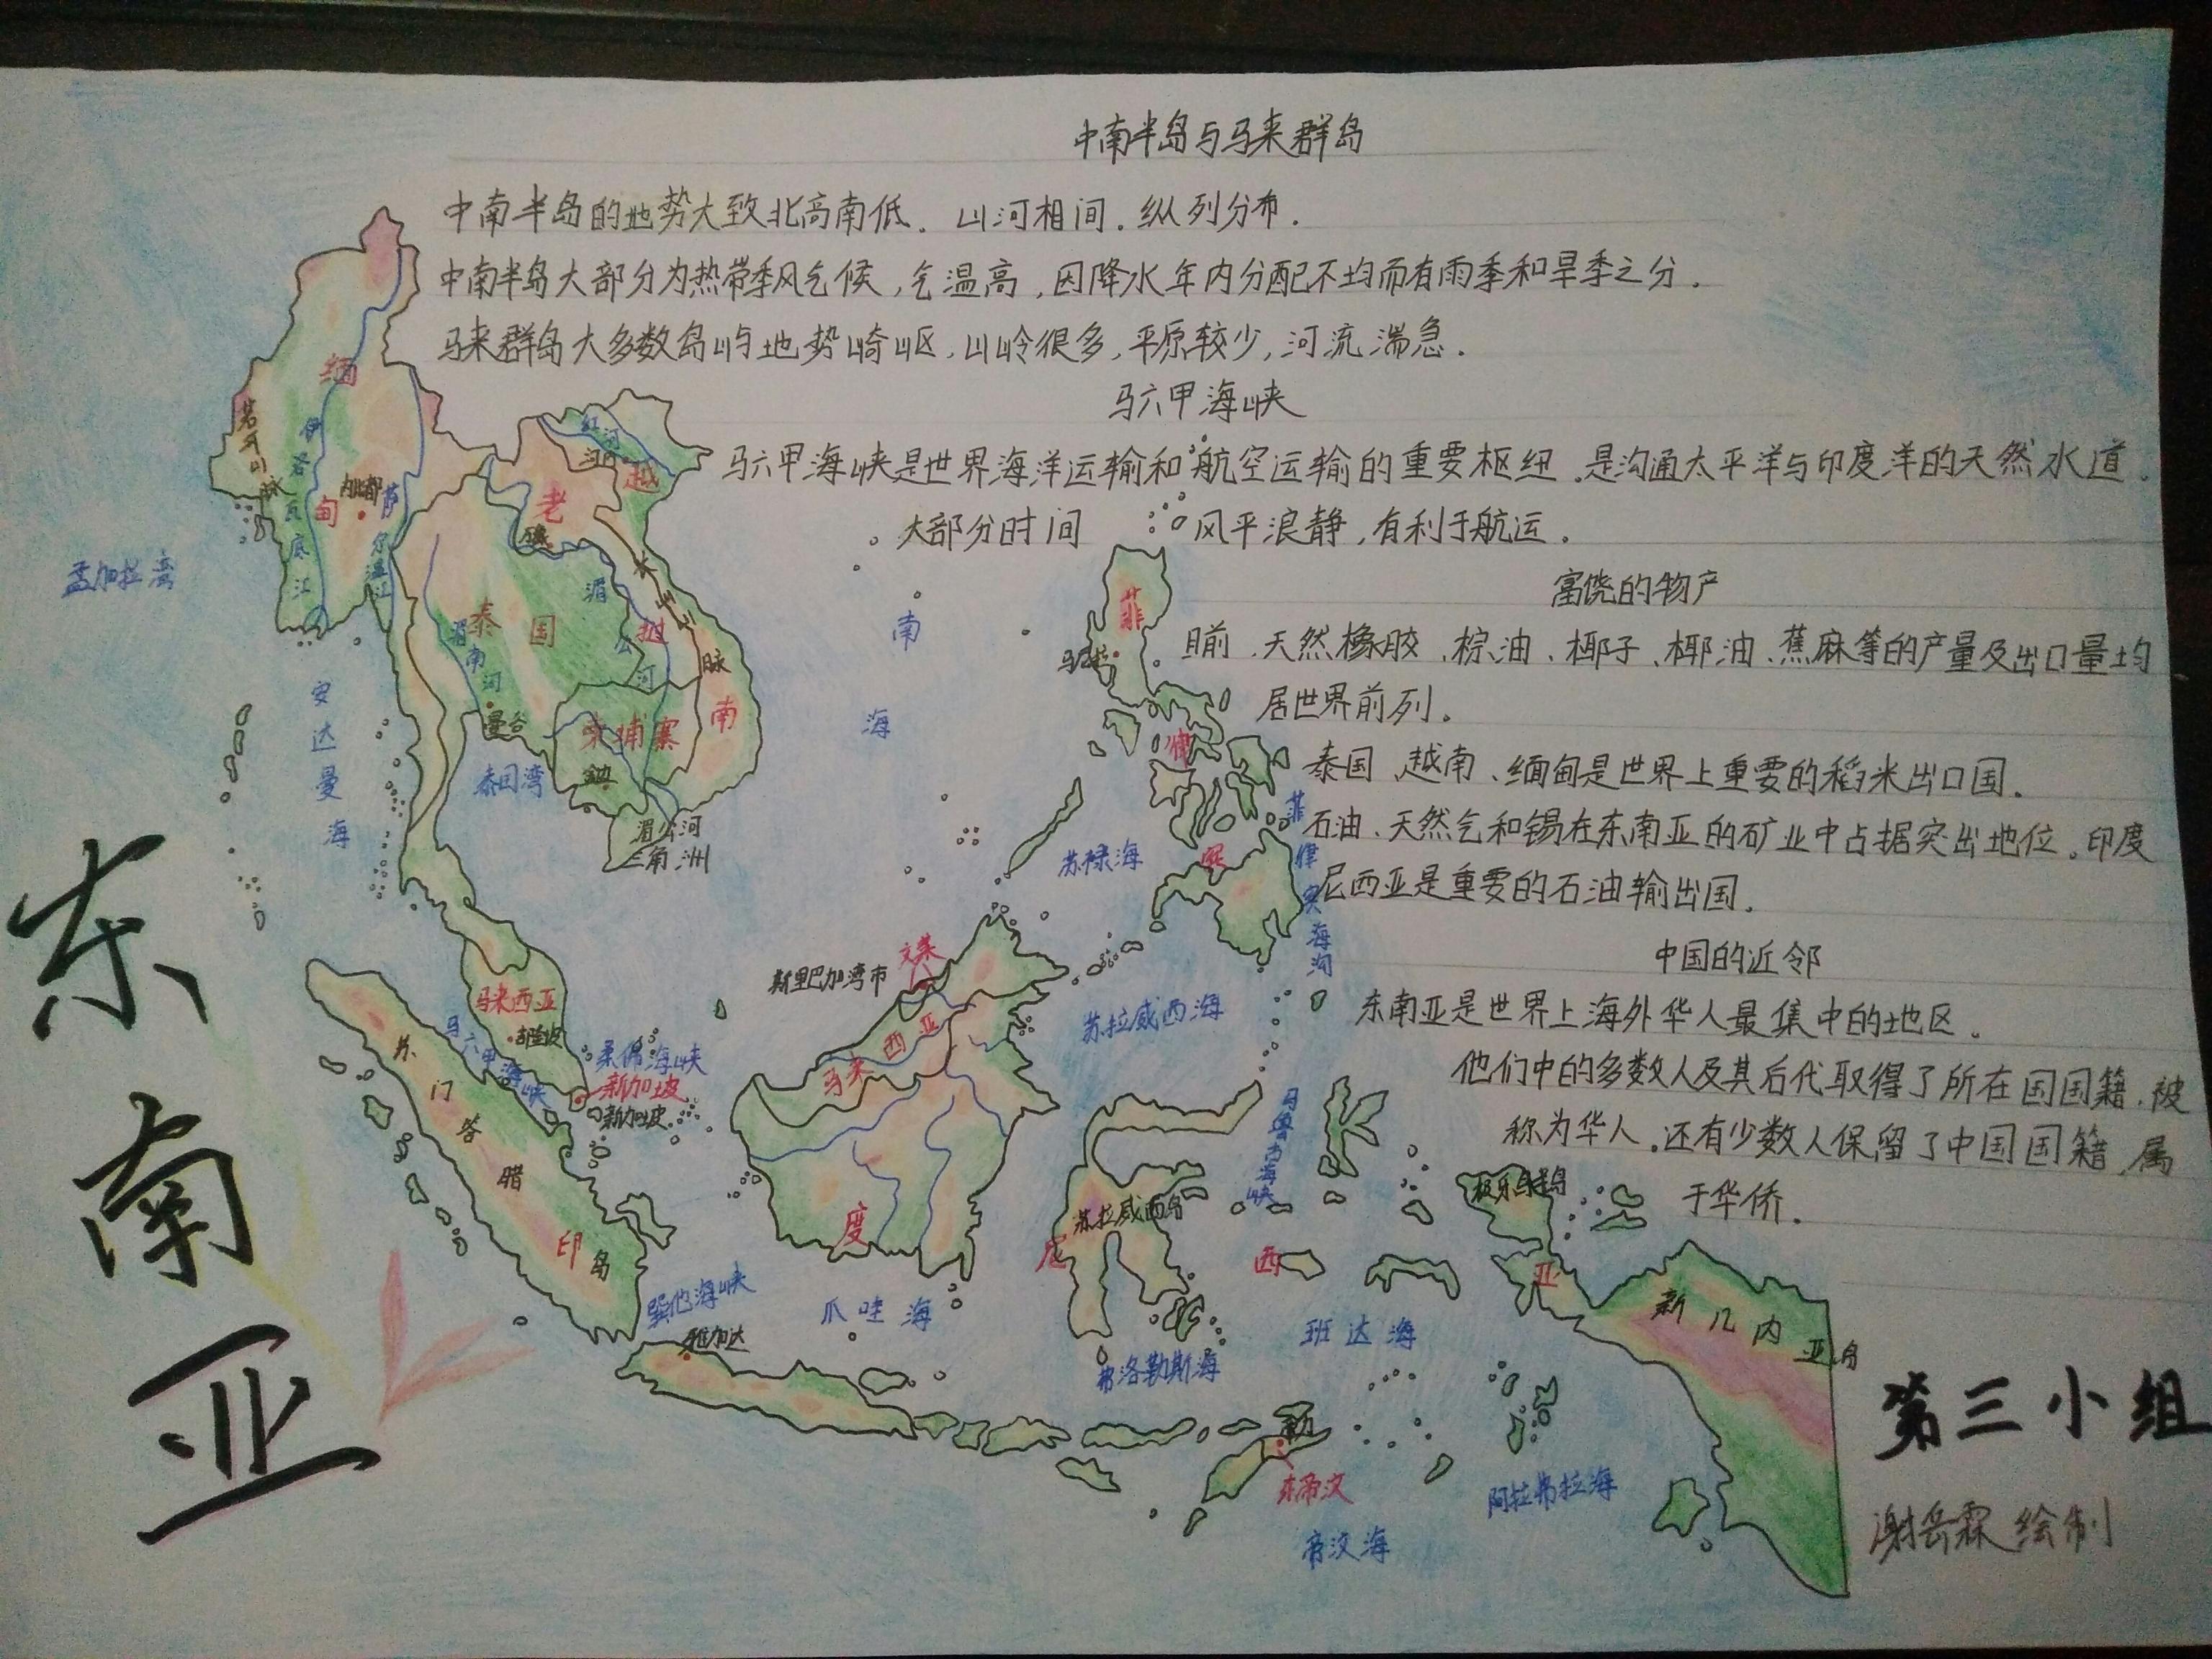 中南半岛与马来群岛
中南半岛的地势大致北高南低.山河相间.纵列分布.
中南半岛大部分为热带季风气候,气温高,因降水年内分配不均而有雨季和旱季之分.
马来群岛大多数岛屿地势崎岖,山岭很多,平原较少,河流湍急.
马六甲海峡
马六甲海峡是世界海洋运输和航空运输的重要枢纽.是沟通太平洋与印度洋的天然水道.
大部分时间 风平浪静,有利于航运.
富饶的物产
目前、天然橡胶、棕油、椰子、椰油、蕉麻等的产量及出口量均
居世界前列。
泰国、越南、缅甸是世界上重要的稻米出口国.
石油、天然气和锡在东南亚的矿业中占据突出地位。印度
尼西亚是重要的石油输出国.
中国的近邻
东南亚是世界上海外华人最集中的地区.
他们中的多数人及其后代取得了所在国国籍.被
称为华人.还有少数人保留了中国国籍,属
于华侨.
东南亚
缅甸
若开山脉
伊洛瓦底江
内比都
萨尔温江
孟加拉湾
安达曼海
红河
河内
越南
老挝
长山山脉
湄公河
泰国
湄南河
曼谷
柬埔寨
泰国湾
湄公河
三角洲
南海
菲律宾
马尼拉
菲律宾海沟
苏禄海
文莱
斯里巴加湾市
苏拉威西海
马来西亚
吉隆坡
马六甲海峡
柔佛海峡
新加坡
新加坡
苏门答腊岛
马来西亚
马鲁古海峡
苏拉威西岛
印度尼西亚
巽他海峡
雅加达
爪哇海
弗洛勒斯海
班达海
新几内亚岛
东帝汶
帝汶海
阿拉弗拉海
第三小组
谢岳霖绘制